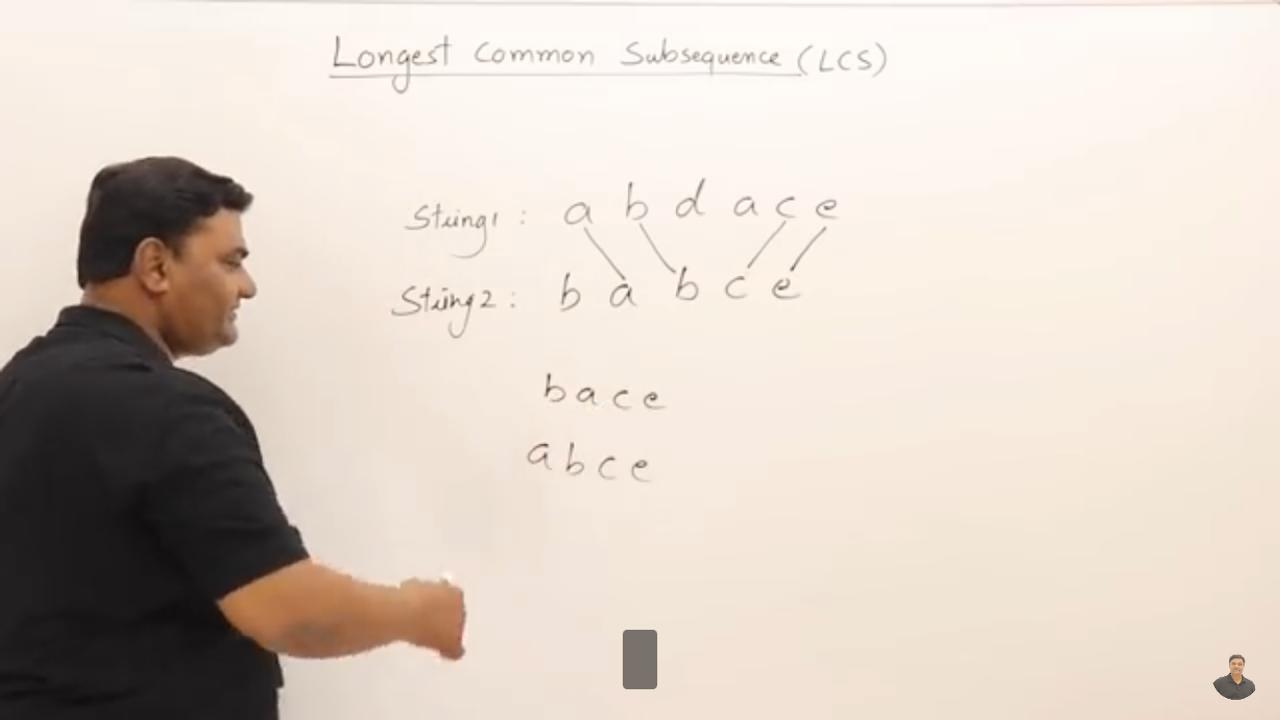 Longest Common Subsequence (LCS)
String1 : a b d a c e
String2 : b a b c e
b a c e
a b c e